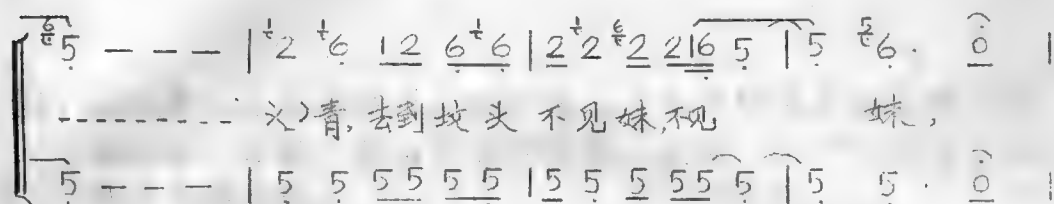 5 - - - | 2 6 12 66 | 2 2 2 216 5 | 5 6 . 0 |
--------- 义)青, 去到坟头 不见妹,不见 妹,
5 - - - | 5 5 55 55 | 5 5 5 55 5 | 5 5 . 0 |